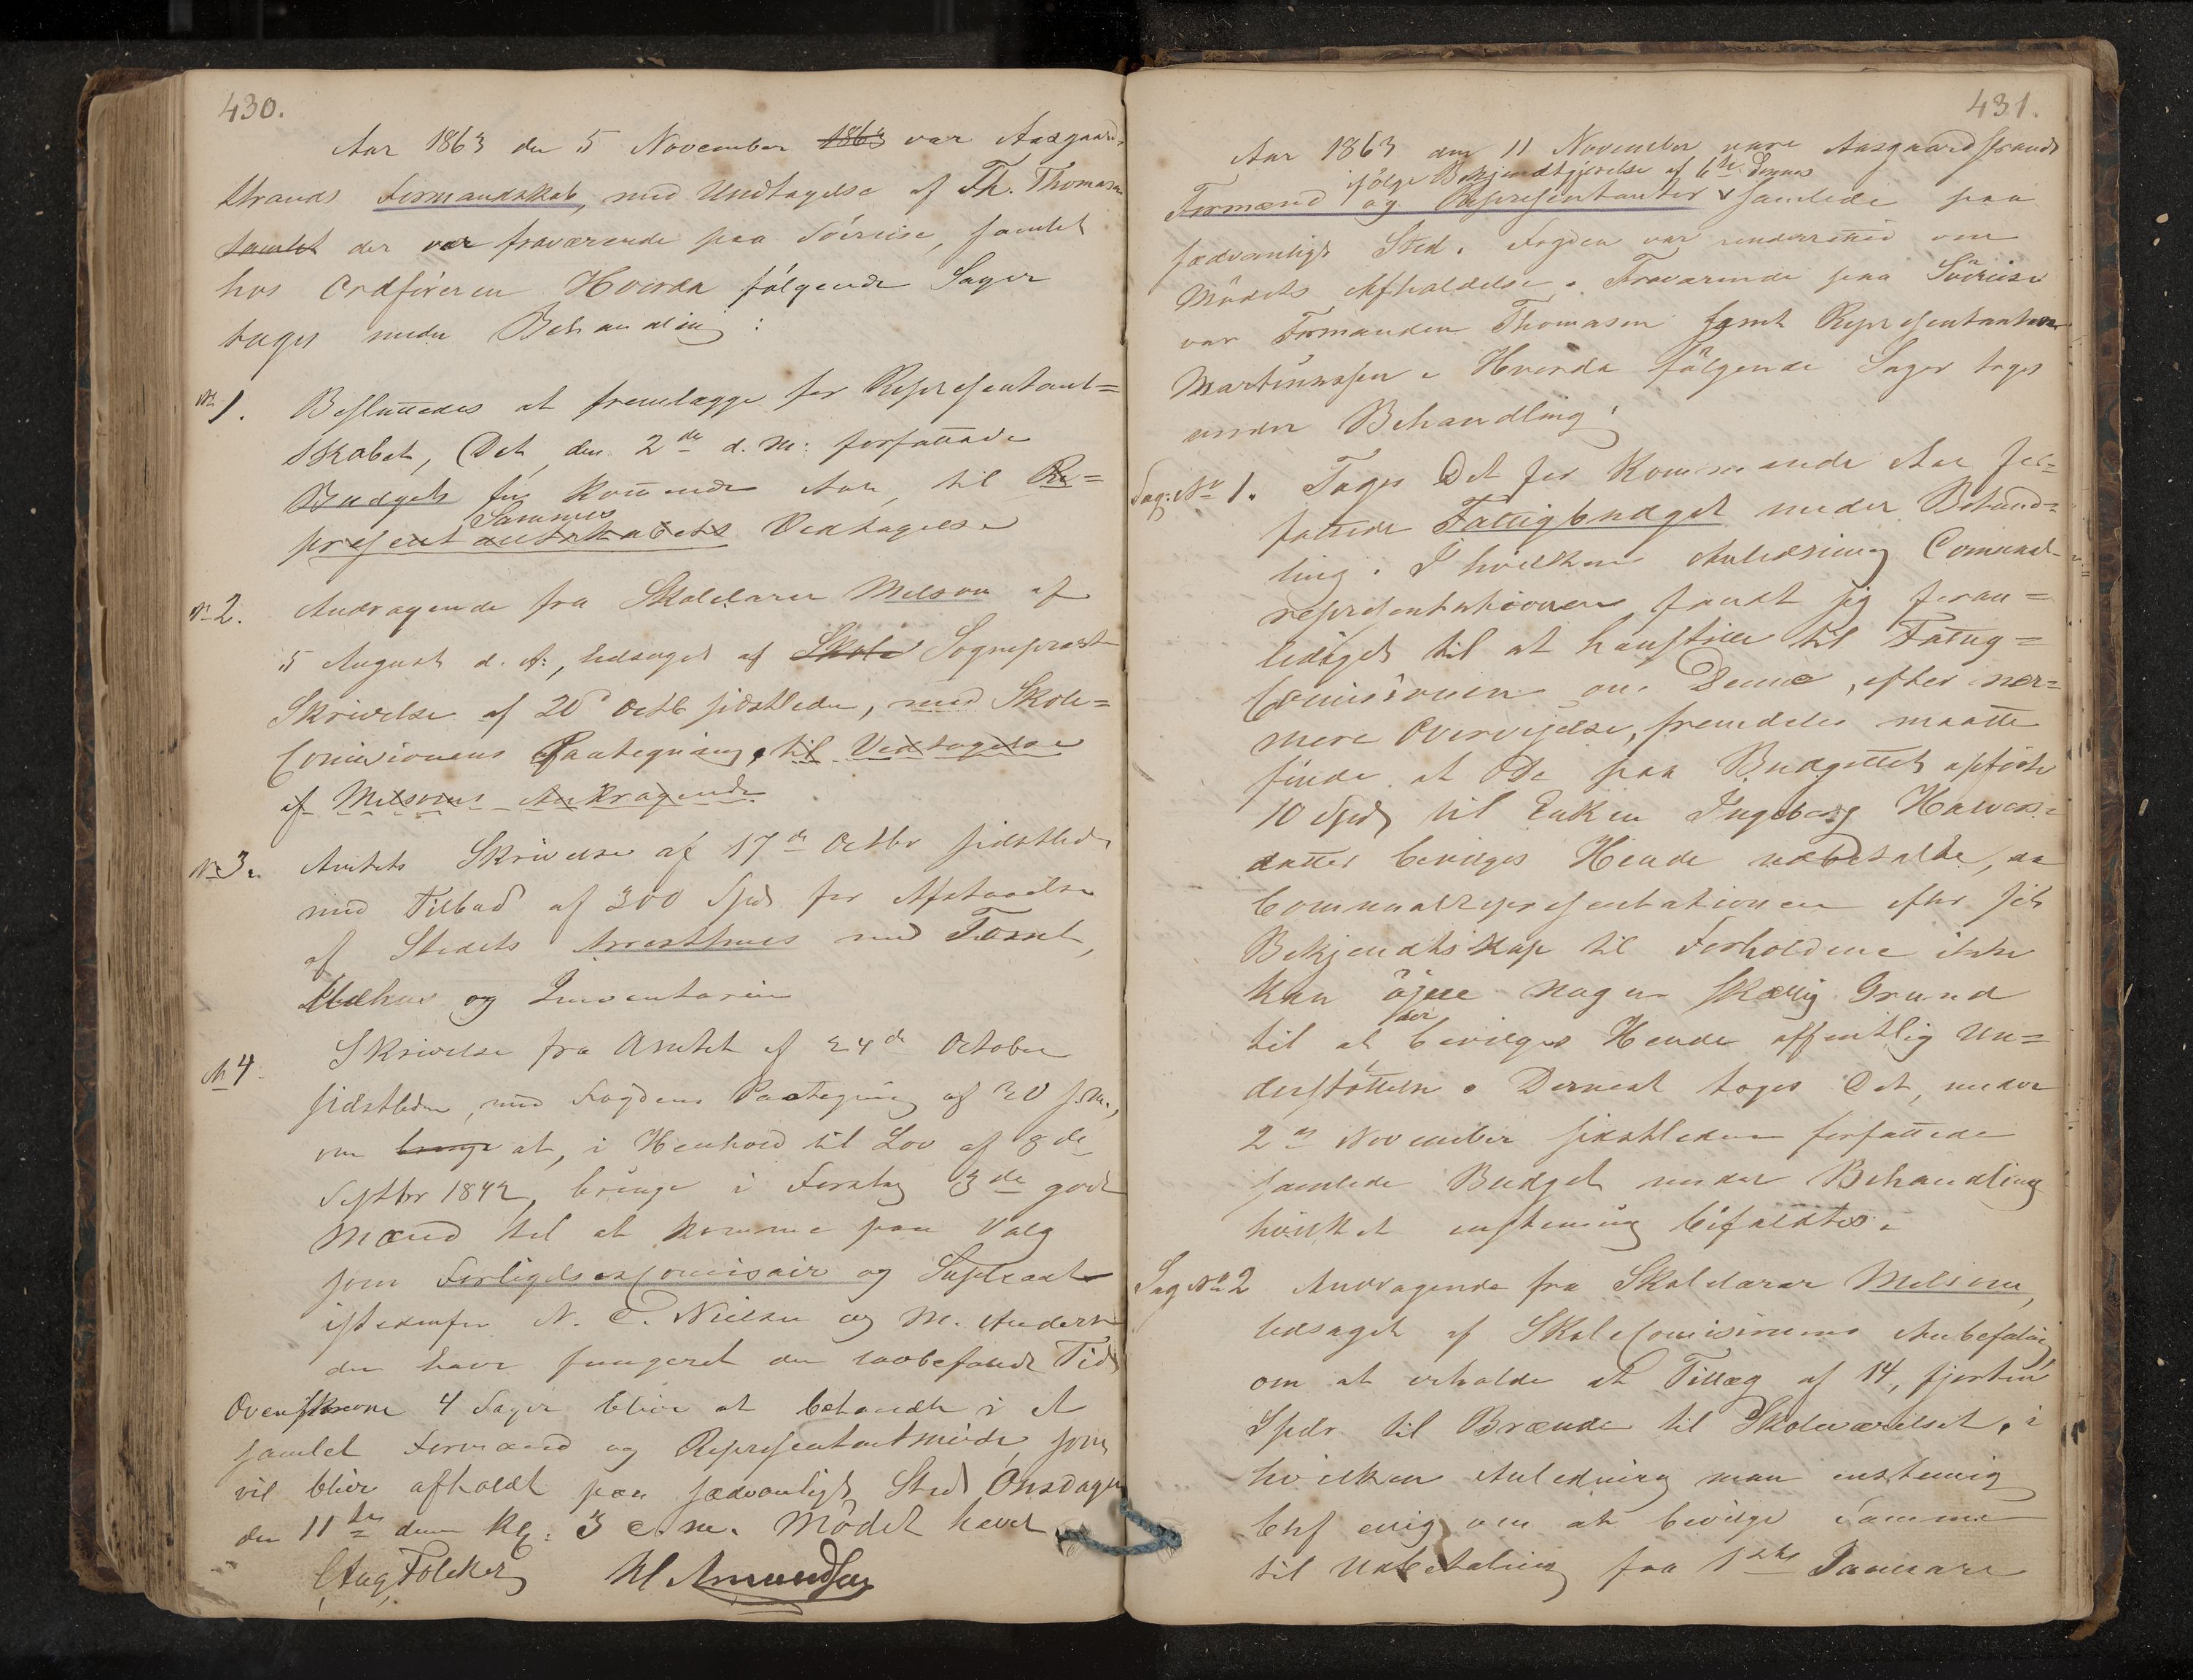 430.
Aar 1863 den 5 November 1863 var Aasgaard-
strands Formandskab, med Undtagelse af Th. Thomasen
samlet der var fraværende paa Söereise, samlet
hos Ordföreren Hvorda fölgende Sager
toges under Behandling:
No 1. Besluttedes at fremlægge for Repræsentant=
skabet, Det den 2de d. M: forfattede
Budget for kommende Aar, til Re=
præsentantskabets Sammes Vedtagelse
No 2. Andragende fra Skolelærer Melsom af
5 August d. A:, ledsaget af Skole Sognepræst
Skrivelse af 20de Octb sidstleden, med Skole=
Comisionens Paategning, til Vedtagelse
af Melsoms Andragende
No 3. Amtets Skrivelse af 17de Octbr sidstleden
med Tilbud af 300 Spd. for Afstaaelse
af Stedets Arresthuus med Tomt,
Udhus og Inventarium
No 4. Skrivelse fra Amtet af 24de October
sidstleden, med Fogdens Paategning af 30 s. M.,
om bringe at, i Henhold til Lov af 8de
Septbr 1842, bringe i Forslag 3de gode
Mænd til at komme paa Valg
som Forligelsescomisair og Supleant
istedenfor N. C. Nielsen og M. Andersen
der have fungeret den lovbefalede Tid
Ovenskrevne 4 Sager bliver at behandle i et
samlet Formænd og Repræsentantmöde, som
vil blive afholdt paa sædvanligt Sted Onsdagen
den 11te dennes Kl: 3 e. m. Mödet hævet
C Aug Fölcker M Amundsen
431.
Aar 1863 den 11 November vare Aasgaardstrands
ifölge Bekjendtgjörelse af 6te Dennes
Formænd og Repræsentanter samlede paa
sædvanligt Sted. Fogden var underrettet om
Mödets Afholdelse. Fraværende paa Söereise
var Formanden Thomasen samt Repræsentanten
Martinussen. Hvorda fölgende Sager toges
under Behandling:
Sag: No 1. Toges Det for Kommende Aar for=
fattede Fattigbudget under Behand=
ling. I hvilken Anledning Comunal-
repræsentationen fandt sig foran=
lediget til at henstille til Fattig=
Comisionen om Denne, efter nær=
mere Overveielse, fremdeles maatte
finde at De paa Budgettet opförte
10 Spd til Enken Ingeborg Halvors=
datter bevilges Hende udbetalte, da
Communalrepræsentationen efter sit
Bekjendtskap til Forholdene ikke
kan öjne nogen skellig Grund
til at der bevilges Hende offentlig Un=
derstöttelse. Dernæst toges Det, under
2de November sidstleden forfattede
samlede Budget under Behandling
hvilket enstemmig bifaldtes.
Sag No 2 Andragende fra Skolelærer Melsom,
ledsaget af Skolecomisionens Anbefaling
om at erholde et Tillæg af 14, fjorten
Spdr til Brænde til Skoleværelset, i
hvilken Anledning man enstemmig
blef enig om at bevilge Samme
til Udbetaling fra 1ste Januar